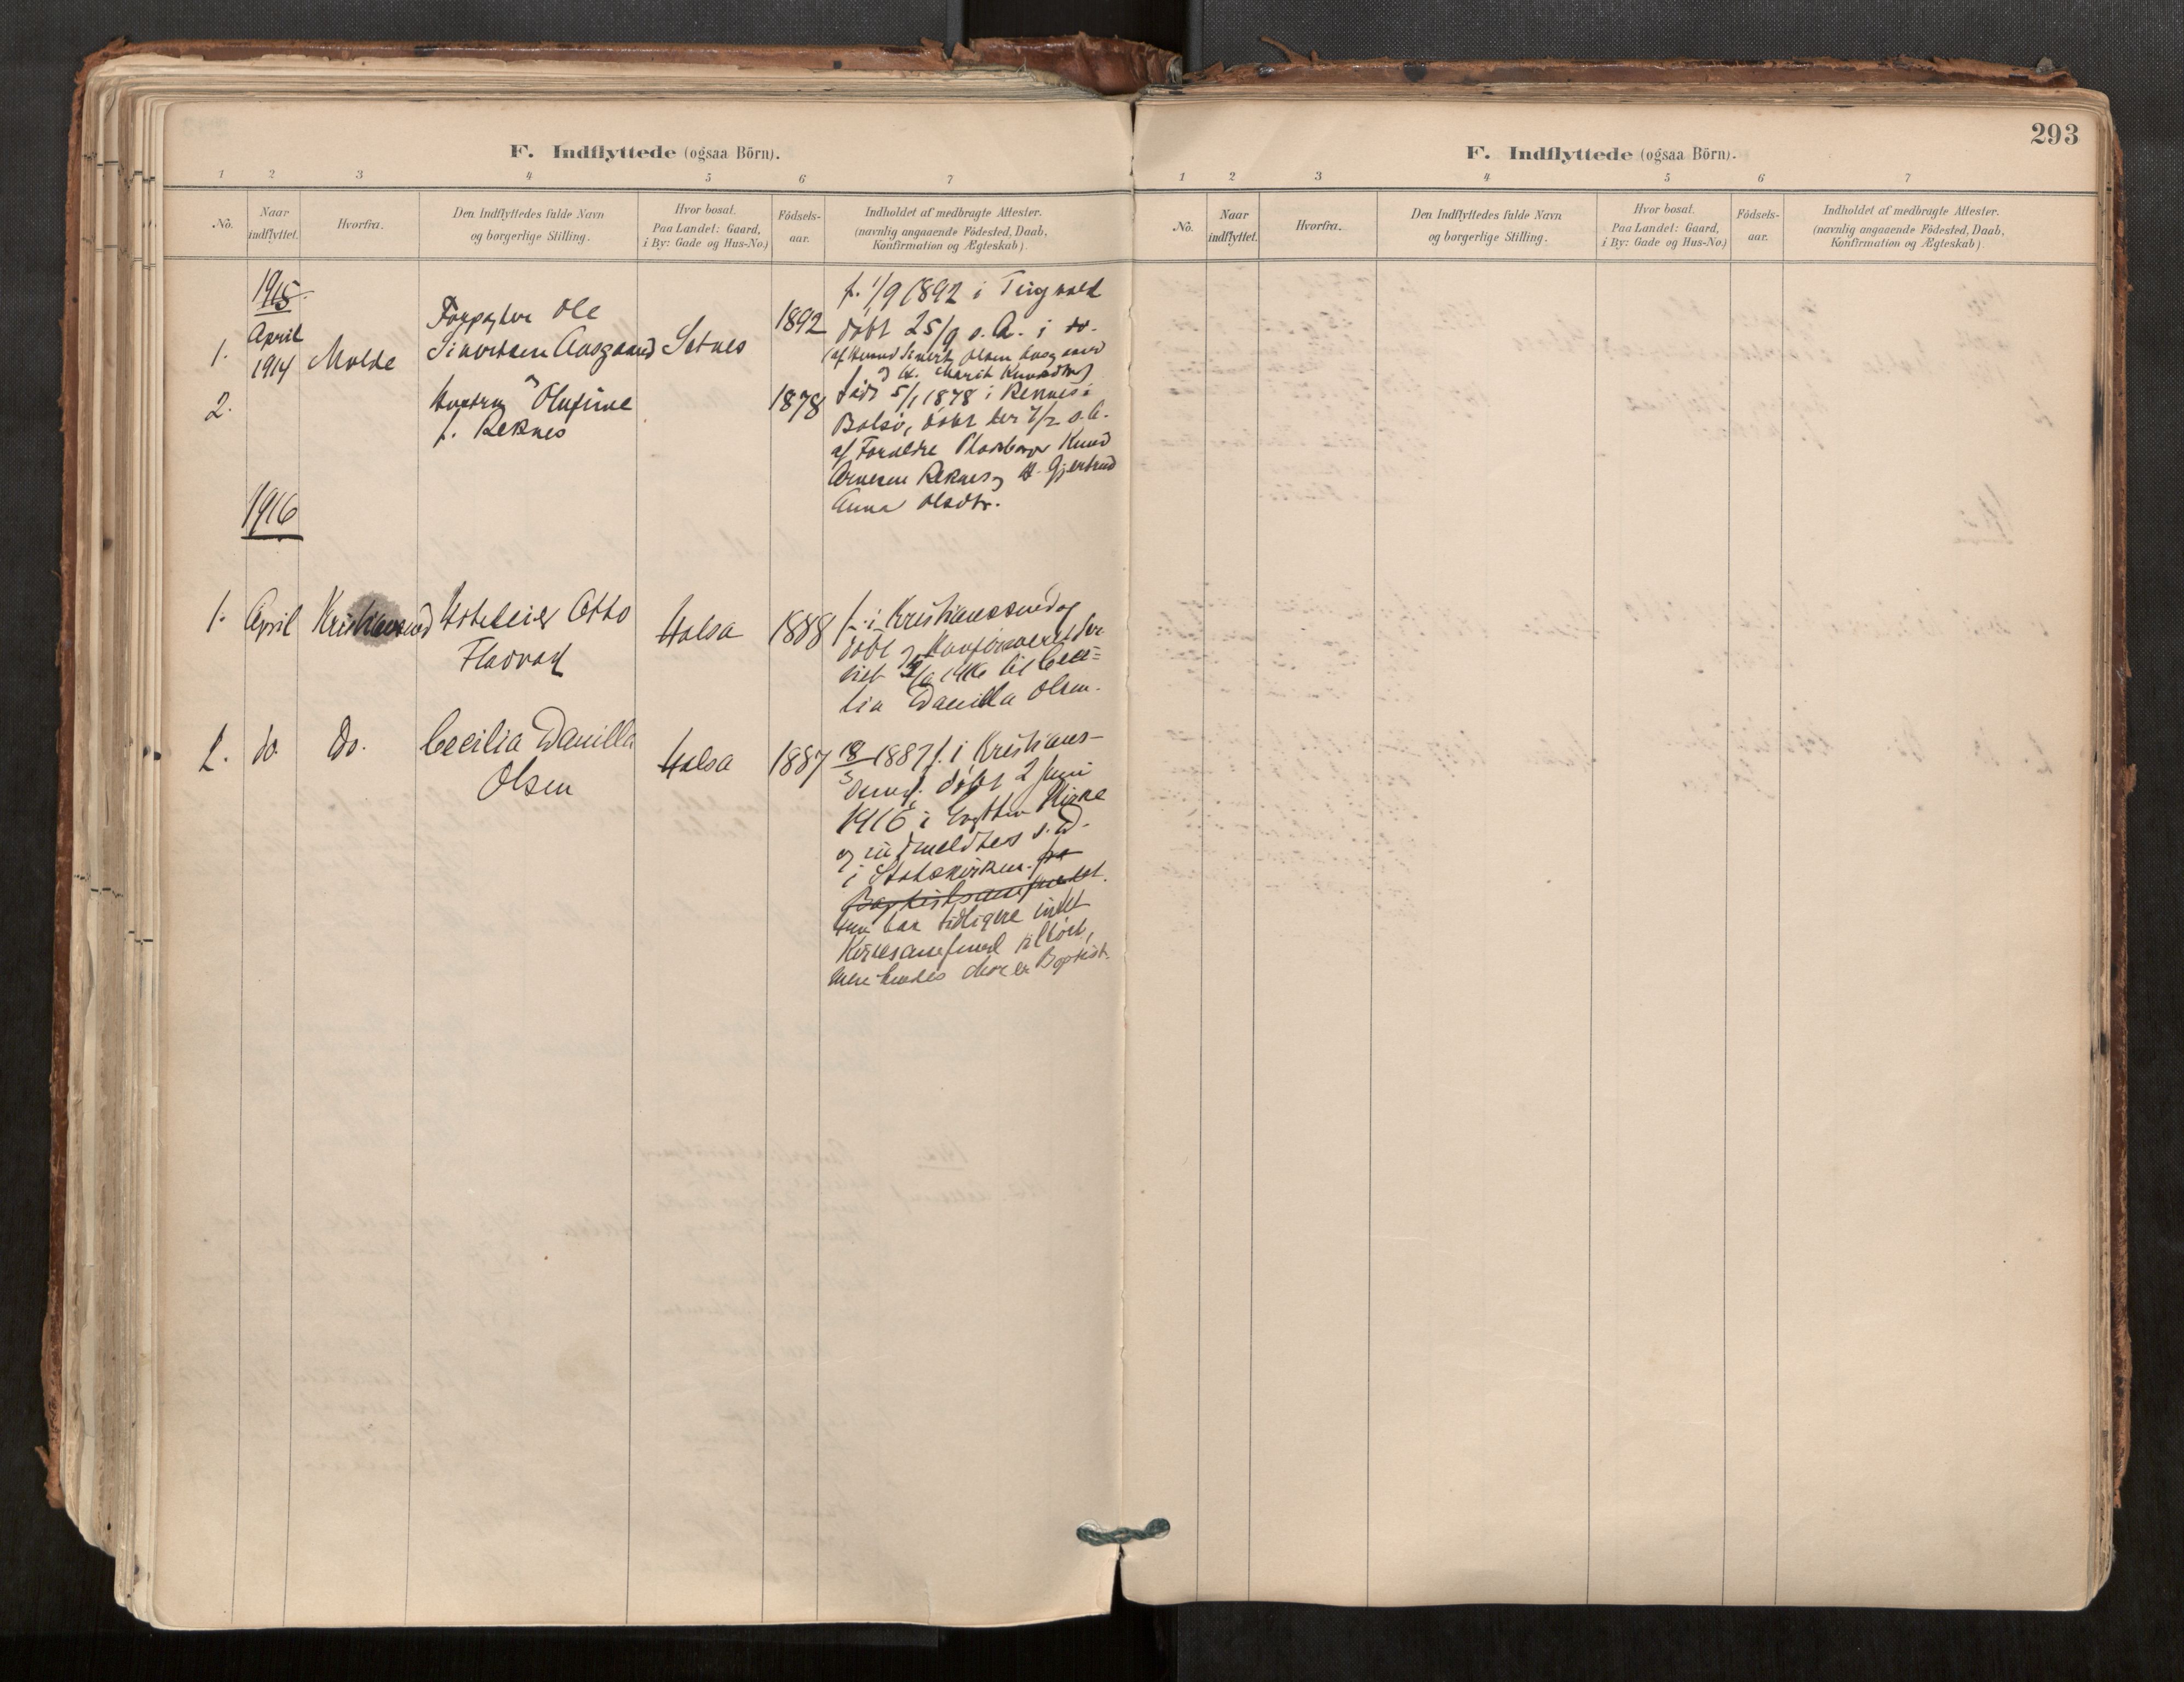 F. Indflyttede (ogsaa Börn).
1 2 3 4 5 6 7
No.
Naar indflyttet.
Hvorfra.
Den Indflyttedes fulde Navn og borgerlige Stilling.
Hvor bosat. Paa Landet: Gaard, i By: Gade og Hus-No.)
Fódsels-aar.
Indholdet af medbragte Attester. (navnlig angaaende Fódested, Daab, Konfirmation og Ægteskab).
1915
1. April 1914 Molde
Forpagter Ole
Sivertsen Aasgaard
Setnes
1892
f. 1/9 1892 i Tingvold
døbt 25/9 s. A. i do.
Sivert Olsen Aasgaard
og H. Marit Knudsdtr
2.
Hustru Olufine
f. Reknes
1878
født 5/1 1878 i Reknes i
Bolsø, døbt der s. A.
af Forældre Knud
Arnesen Reknes og H. Gjertrud
Anna Olsdtr.
1916
1. April Kristiansund
Hoteleier Otto
Fladvad
Halsa
1888
f. i Kristianssund og
døbt og Konfirmeret der
viet 1916 til Ceci=
lia Danilla Olsen.
2. do Do.
Cecilia Danilla
Olsen
Halsa
1887
18/5 1887 f. i Kristians-
sund. døbt 2 Juni
1916 i Kirke
og indmeldtes s. D.
i Statskirken. fra
Baptistsamfundet.
Hun har tidligere intet
Kirkesamfund tilhørt,
men hendes er Baptist.
293
F. Indflyttede (ogsaa Börn).
1 2 3 4 5 6 7
No.
Naar indflyttet.
Hvorfra.
Den Indflyttedes fulde Navn og borgerlige Stilling.
Hvor bosat. Paa Landet: Gaard, i By: Gade og Hus-No.)
Fódsels-aar.
Indholdet af medbragte Attester. (navnlig angaaende Fódested, Daab, Konfirmation og Ægteskab).